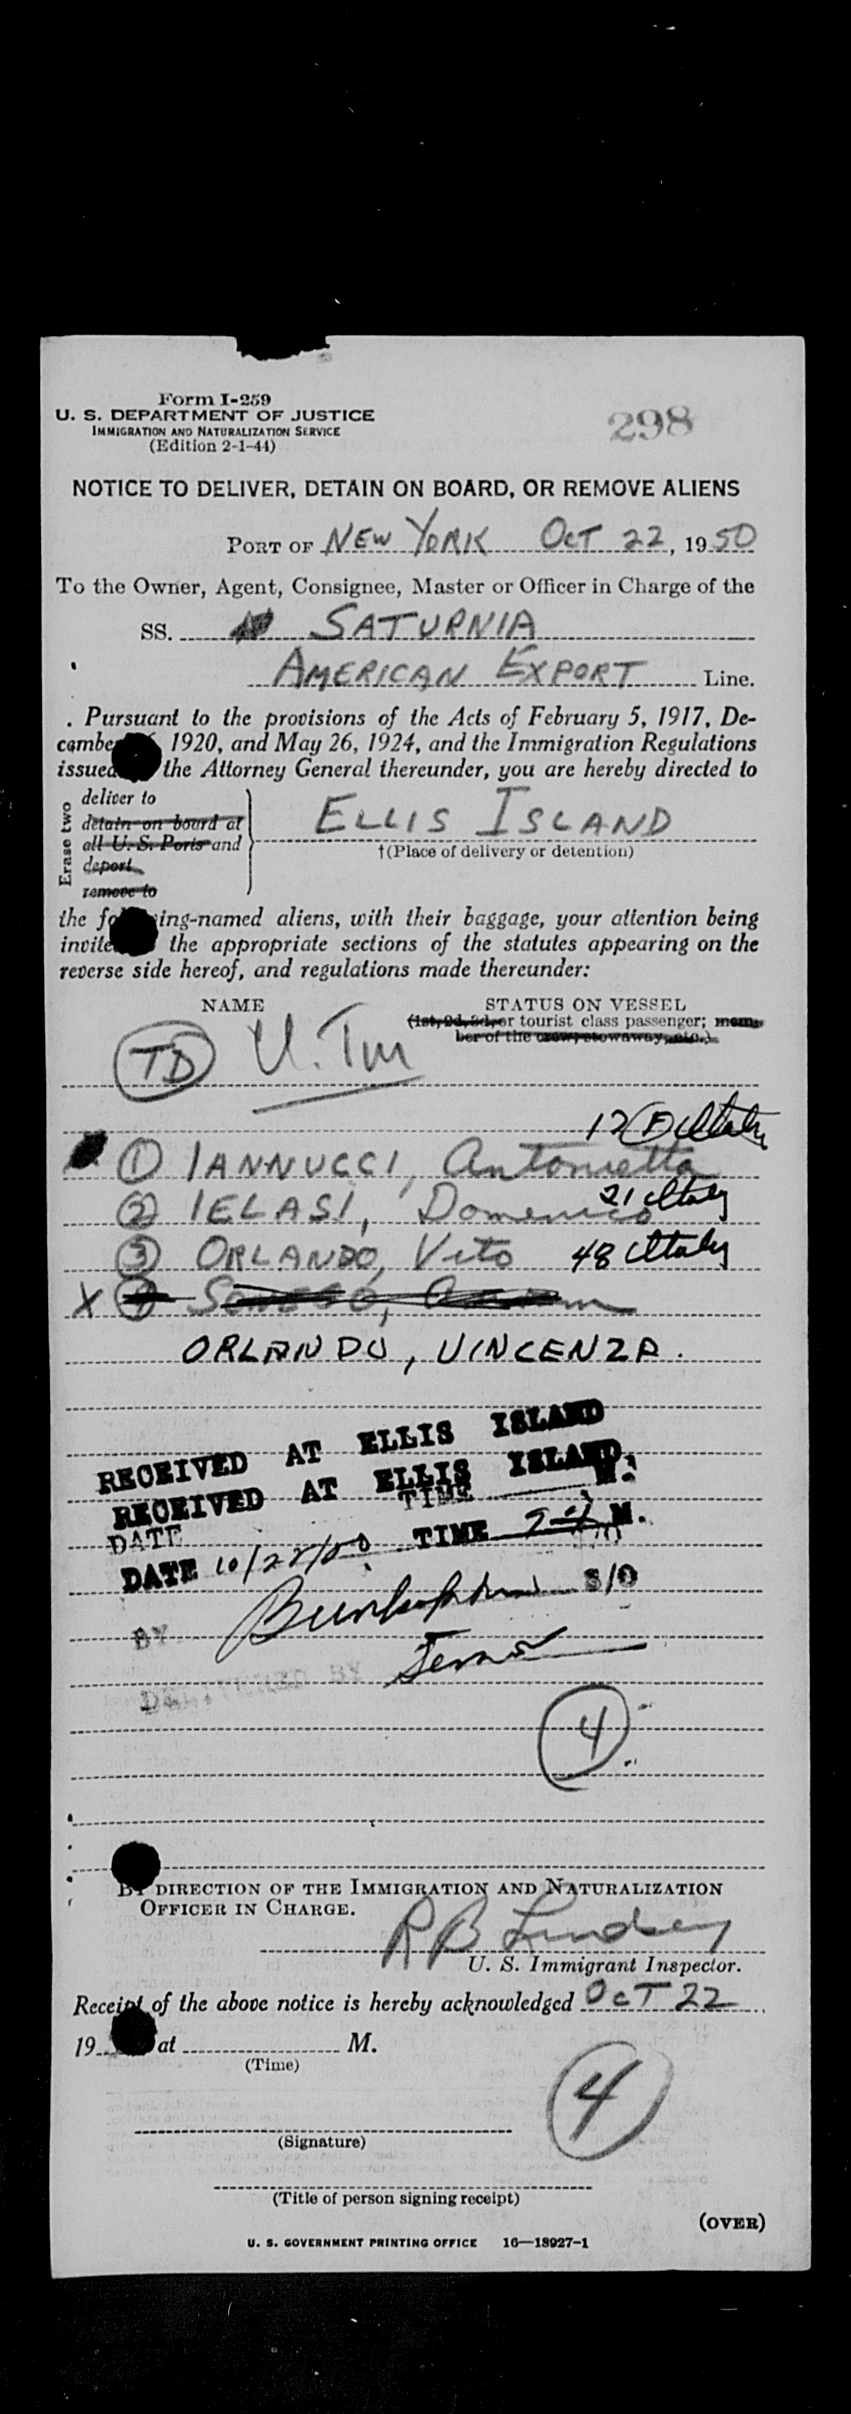 Form I-259
U. S. DEPARTMENT OF JUSTICE
IMMIGRATION AND NATURALIZATION SERVICE
(Edition 2-1-44)
298
NOTICE TO DELIVER, DETAIN ON BOARD, OR REMOVE ALIENS
PORT OF NEW YORK OCT 22, 1950
To the Owner, Agent, Consignee, Master or Officer in Charge of the
SS. SATURNIA
AMERICAN EXPORT Line.
Pursuant to the provisions of the Acts of February 5, 1917, De-
1920, and May 26, 1924, and the Immigration Regulations
issued the Attorney General thereunder, you are hereby directed to
Erase two
deliver to
detain on board at
all U. S. Ports and
deport
remove to
ELLIS ISLAND
†(Place of delivery or detention)
the -named aliens, with their baggage, your attention being
the appropriate sections of the statutes appearing on the
reverse side hereof, and regulations made thereunder:
NAME STATUS ON VESSEL
(1st, 2d, 3d, or tourist class passenger; mem-
ber of the crew, stowaway, etc.)
TD
12 F Italy
1 IANNUCCI, Antonietta
2 IELASI, Domenico 21 Italy
3 ORLANDO, Vito 48 Italy
X 4
ORLANDO, VINCENZA.
RECEIVED AT ELLIS ISLAND
RECEIVED AT ELLIS ISLAND
DATE TIME M.
DATE 10/22/50 TIME M.
S/O
BY
DELIVERED BY
4
BY DIRECTION OF THE IMMIGRATION AND NATURALIZATION
OFFICER IN CHARGE.
R B Lindsey
U. S. Immigrant Inspector.
Receipt of the above notice is hereby acknowledged OCT 22
19 at M.
(Time)
4
(Signature)
(Title of person signing receipt)
(OVER)
U. S. GOVERNMENT PRINTING OFFICE 16—18927-1